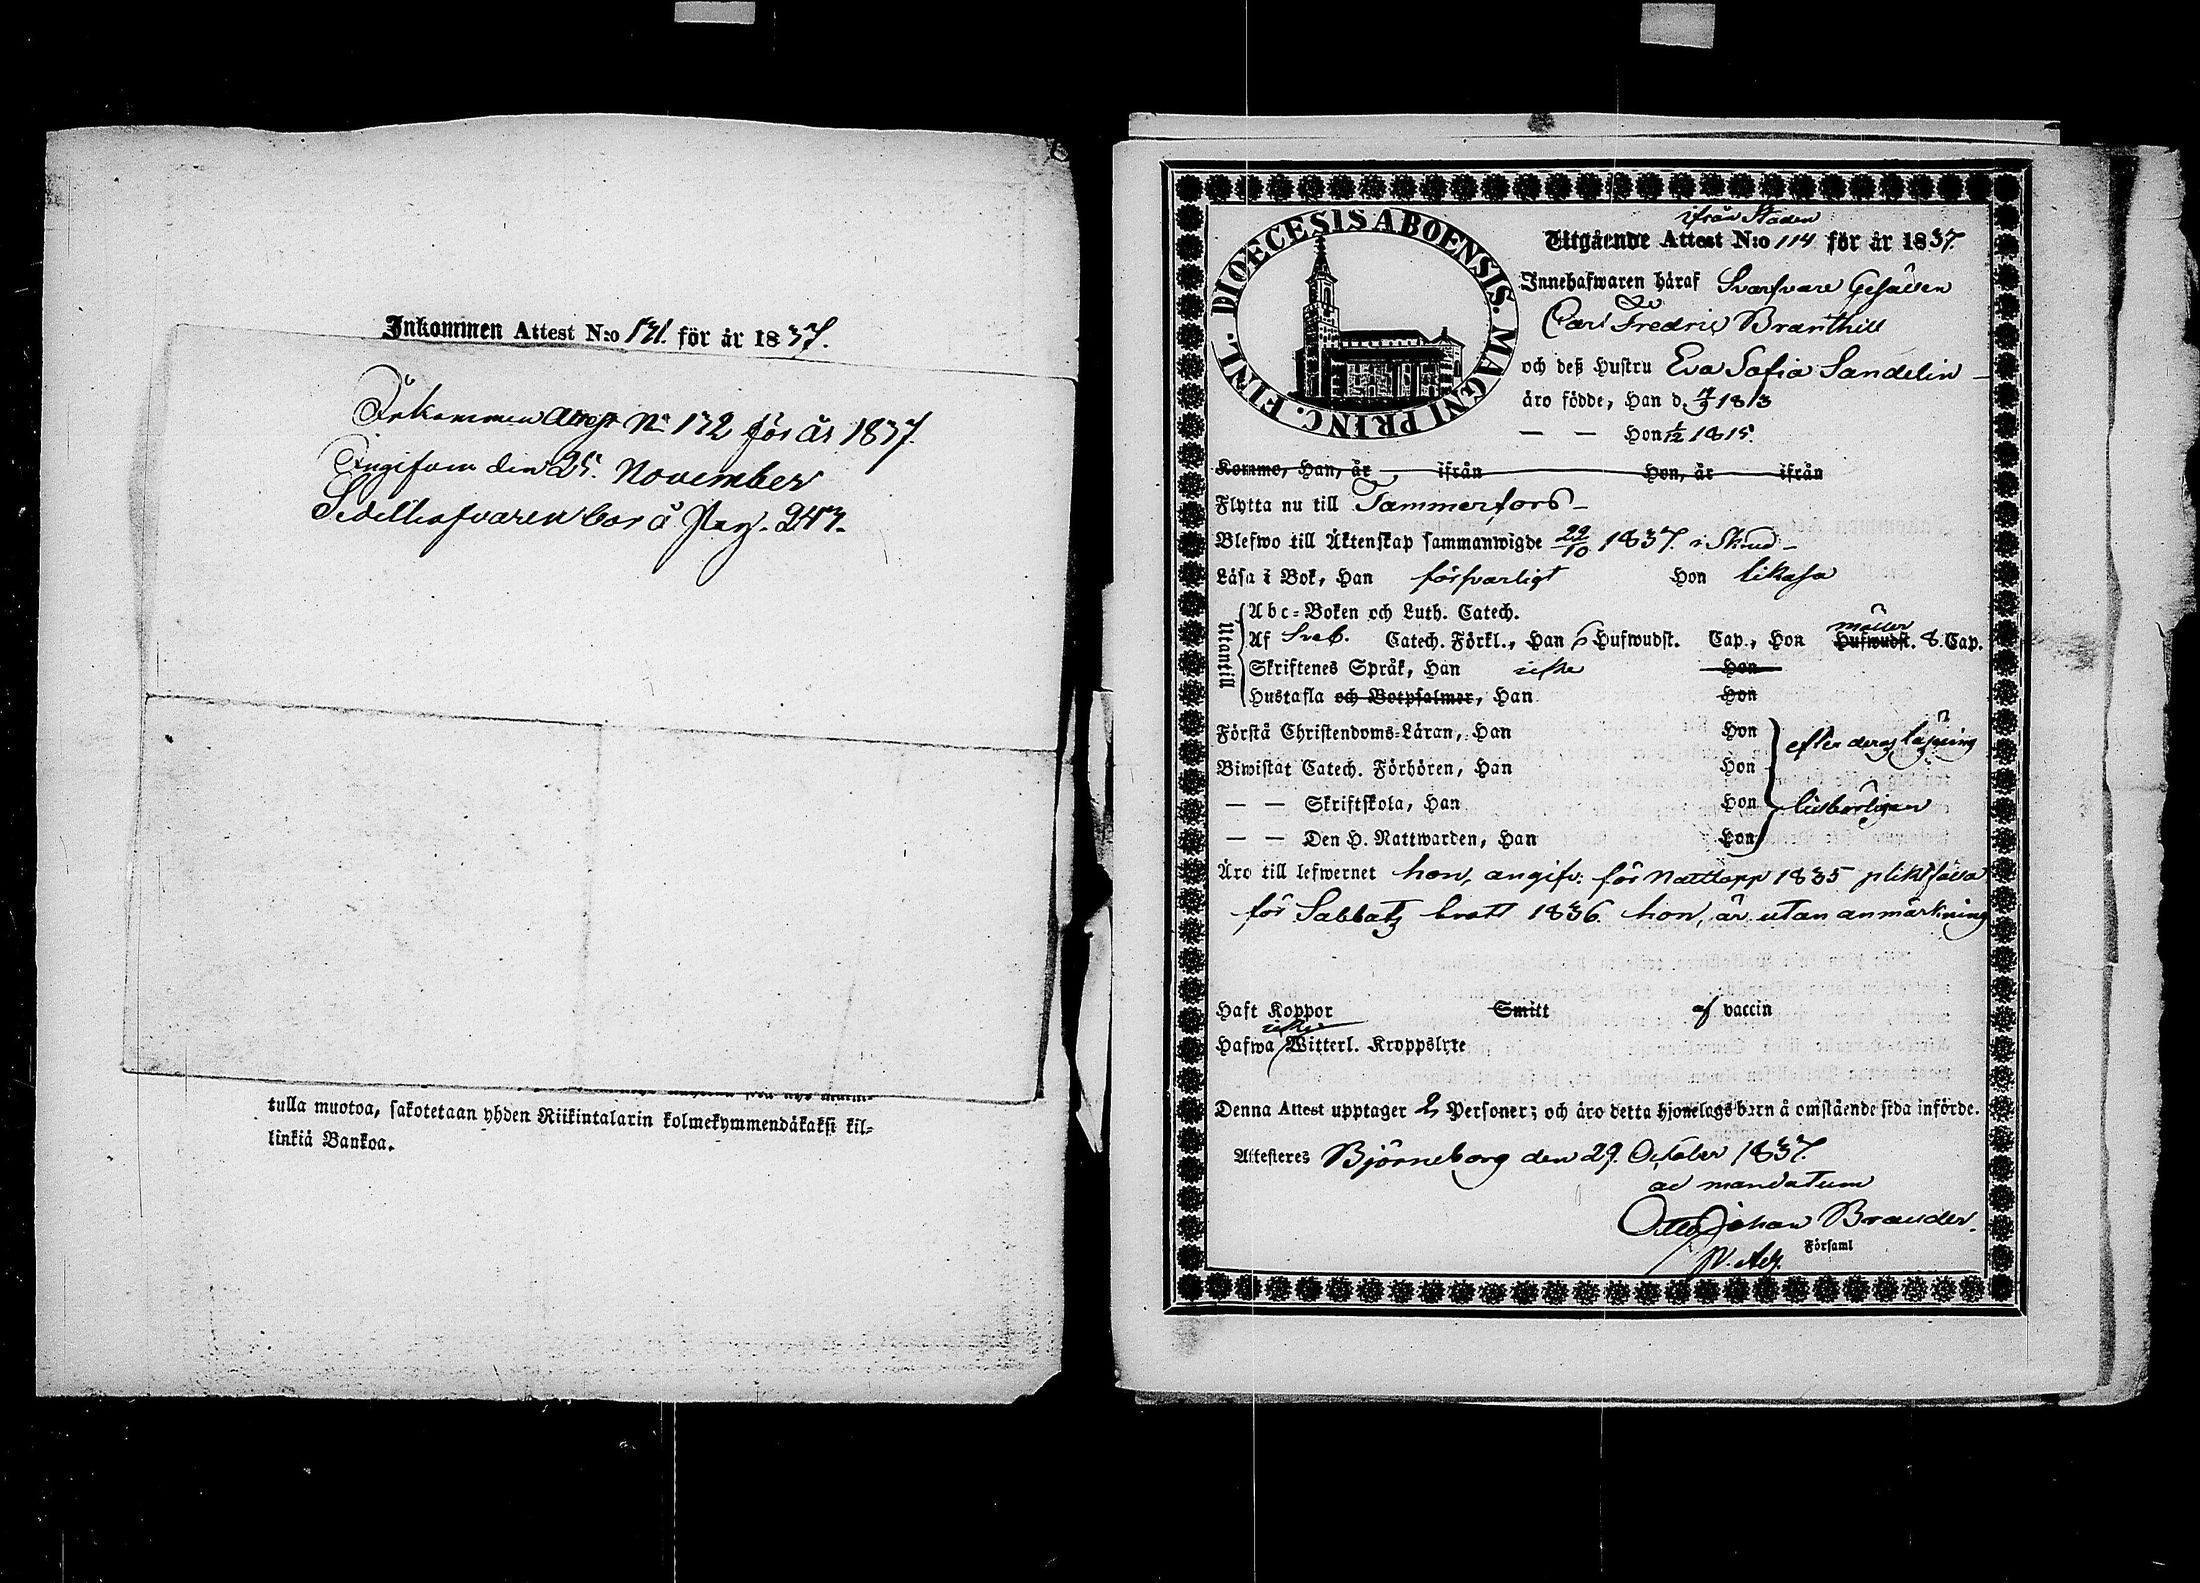 Inkommen Attest N:o 131. för år 1837.
Inkommen Attest No 132 för år 1837.
Ingifven den 25. November
Sedelhafvaren bor å Pag. 243.
tulla muotoa, sakotetaan yhden Riikintalarin kolmekymmendäkaksi kil-
linkiä Bankoa.
DIOECESIS ABOENSIS. MAGNI PRINC. FINL.
ifrån Staden
Utgående Attest N:o 114 för år 1837.
Innehafwaren häraf Svarfvare Gesällen
Carl Fredric Branthill
och deß Hustru Eva Sofia Sandelin
äro födde, Han d. 1813
— — Hon 1/12 1815.
Komne, Han, år ifrån Hon, år ifrån
Flytta nu till Tammerfors
Blefwo till Äktenskap sammanwigde 22/10 1837. i
Läsa i Bok, Han försvarligt Hon likaså
Utantill
Abc-Boken och Luth. Catech.
Af Sveb. Catech. Förkl., Han 6 Hufwudst. Cap., Hon Hufwudst. 8. Cap.
Skriftenes Språk, Han icke Hon
Hustafla och Botpsalmer, Han Hon
Förstå Christendoms-Läran, Han Hon efter deras läsning
Biwistat Catech. Förhören, Han Hon
— — Skriftskola, Han Hon
— — Den H. Nattwarden, Han Hon
Äro till lefwernet han, angifv: för Nattlopp 1835 pliktfälld
för Sabbats brott 1836. hon, är utan anmärkning
Haft Koppor Smitt af vaccin
icke
Hafwa Witterl. Kroppslyte
Denna Attest upptager 2 Personer; och äro detta hjonelags barn å omstående sida införde.
Attesteres Björneborg den 29. October 1837.
ad mandatum
Otto Johan Brander.
Församl